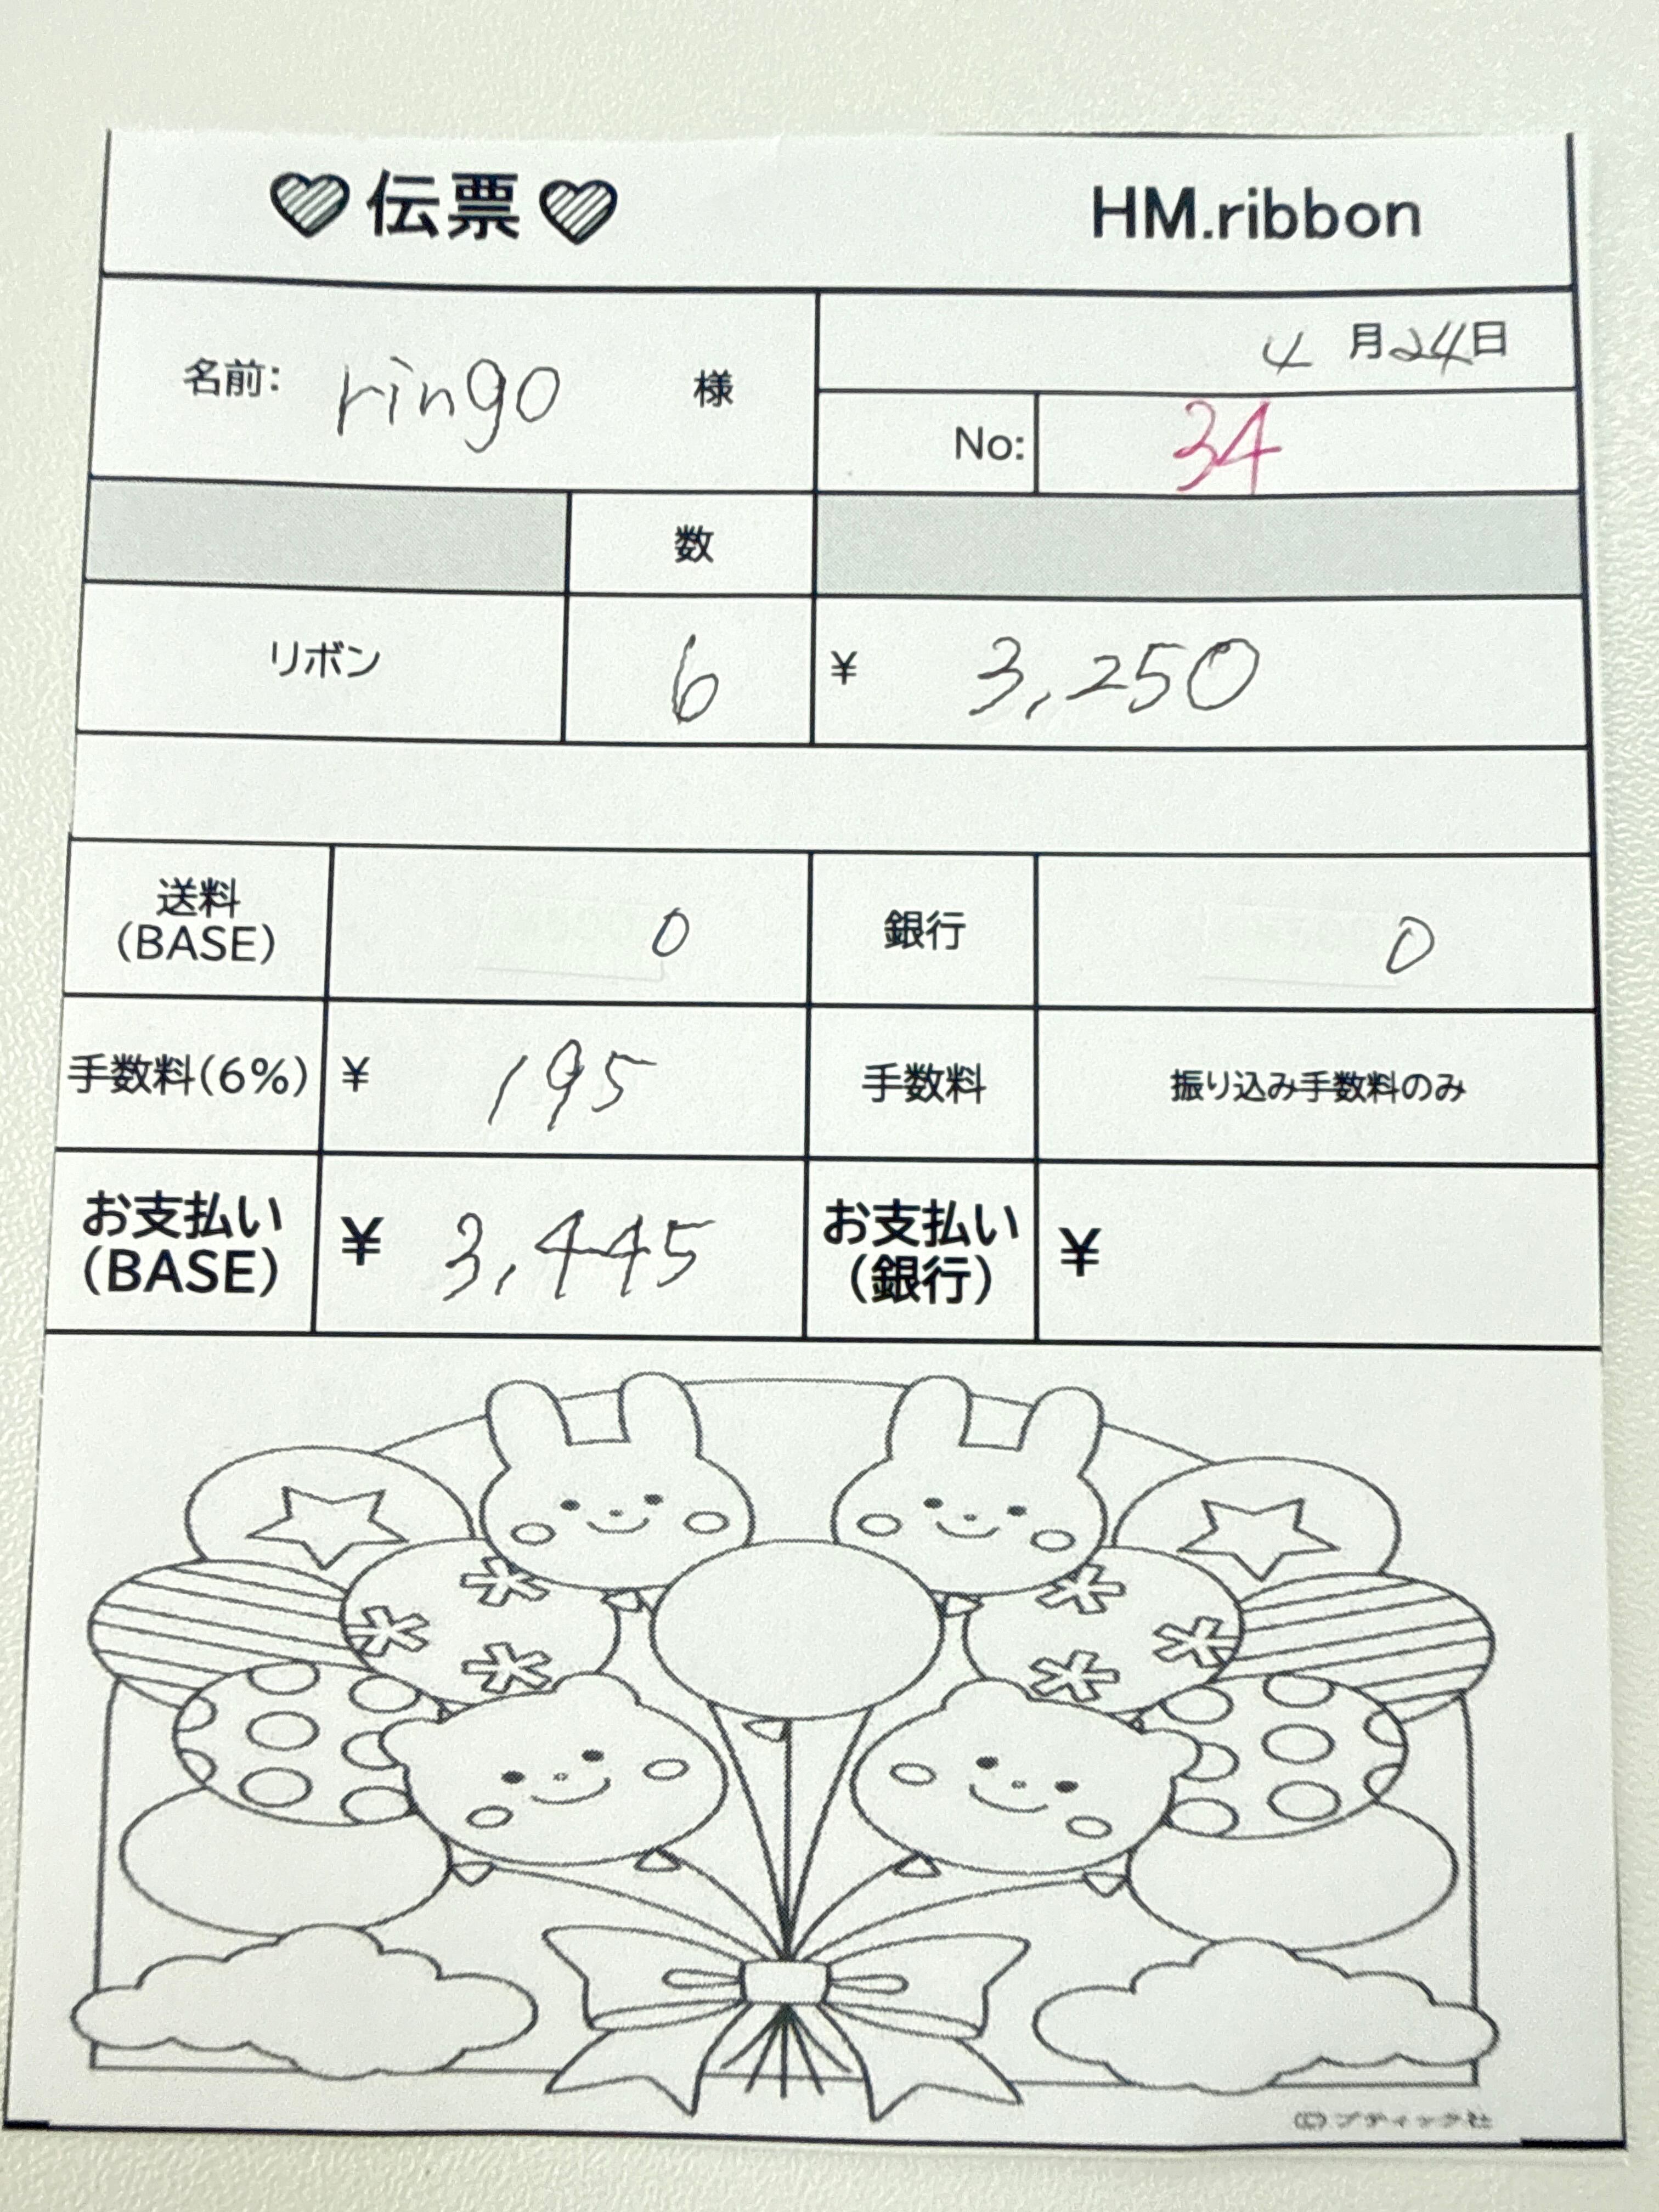 伝票 HM.ribbon
名前: ringo 様
4月24日
No: 34
数
リボン 6 ¥ 3,250
送料 (BASE) 0 銀行 0
手数料(6%) ¥ 195 手数料 振り込み手数料のみ
お支払い (BASE) ¥ 3,445 お支払い (銀行) ¥
©ブティック社